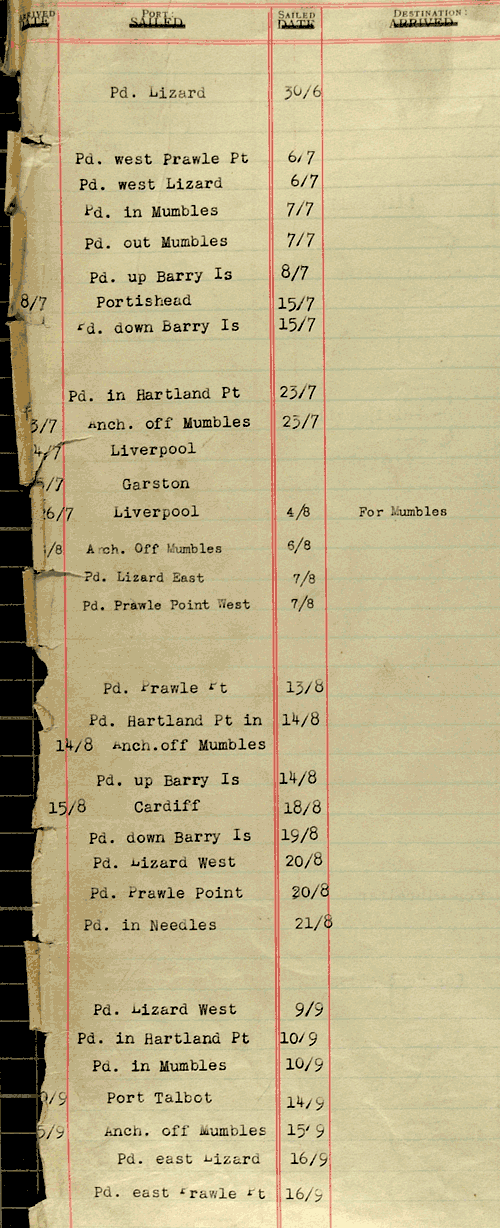 PORT: SAILED DESTINATION:
SAILED DATE ARRIVED
Pd. Lizard 30/6
Pd. west Prawle Pt 6/7
Pd. west Lizard 6/7
Pd. in Mumbles 7/7
Pd. out Mumbles 7/7
Pd. up Barry Is 8/7
8/7 Portishead 15/7
Pd. down Barry Is 15/7
Pd. in Hartland Pt 23/7
3/7 Anch. off Mumbles 23/7
4/7 Liverpool
/7 Garston
26/7 Liverpool 4/8 For Mumbles
/8 Anch. Off Mumbles 6/8
Pd. Lizard East 7/8
Pd. Prawle Point West 7/8
Pd. Prawle Pt 13/8
Pd. Hartland Pt in 14/8
14/8 Anch.off Mumbles
Pd. up Barry Is 14/8
15/8 Cardiff 18/8
Pd. down Barry Is 19/8
Pd. Lizard West 20/8
Pd. Prawle Point 20/8
Pd. in Needles 21/8
Pd. Lizard West 9/9
Pd. in Hartland Pt 10/9
Pd. in Mumbles 10/9
0/9 Port Talbot 14/9
5/9 Anch. off Mumbles 15/9
Pd. east Lizard 16/9
Pd. east Prawle Pt 16/9